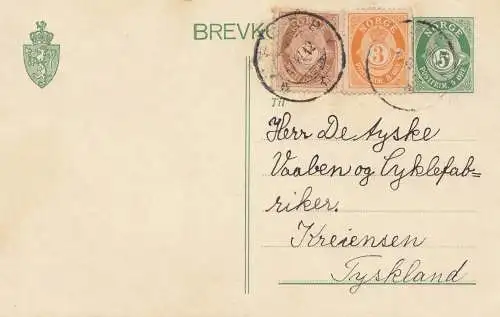 BREVKO
NORGE
3
NORGE
5
POSTFRIM. 5 ØRE
Til
Herr De tyske
Vaaben og Cyklefab-
riker.
Kreiensen
Tyskland